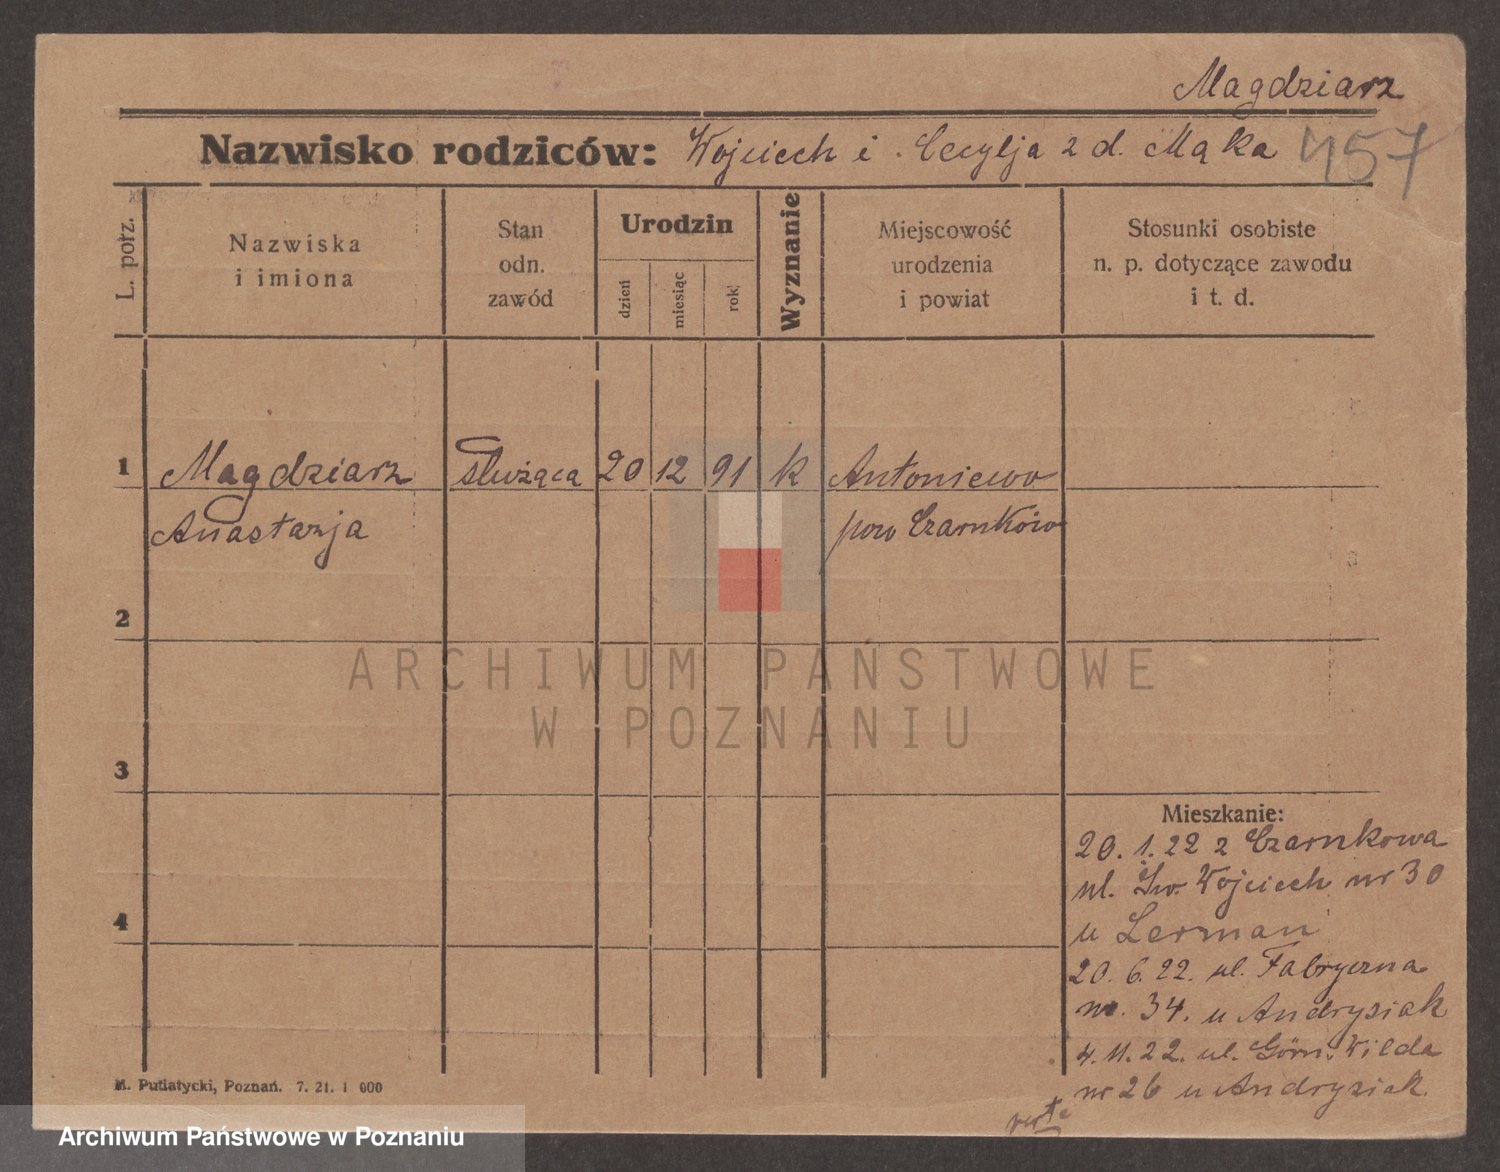 Magdziarz
Nazwisko rodziców: Wojciech i Cecylja z d. Mąka 457
L. porz.
Nazwiska i imiona
Stan odn. zawód
Urodzin
dzień
miesiąc
rok
Wyznanie
Miejscowość urodzenia i powiat
Stosunki osobiste n. p. dotyczące zawodu i t. d.
1 Magdziarz służąca 20 12 91 k Antoniewo
Anastazja pow Czarnków
2
ARCHIWUM PAŃSTWOWE
W POZNANIU
3
Mieszkanie:
20. 1. 22 z Czarnkowa
ul. Św. Wojciech nr 30
4
u Lerman
20. 6. 22. ul. Fabryczna
nr. 34. u Andrysiak
4. 11. 22. ul. Górn. Wilda
nr 26 u Andrysiak.
M. Putiatycki, Poznań. 7. 21. 1 000
verte
Archiwum Państwowe w Poznaniu